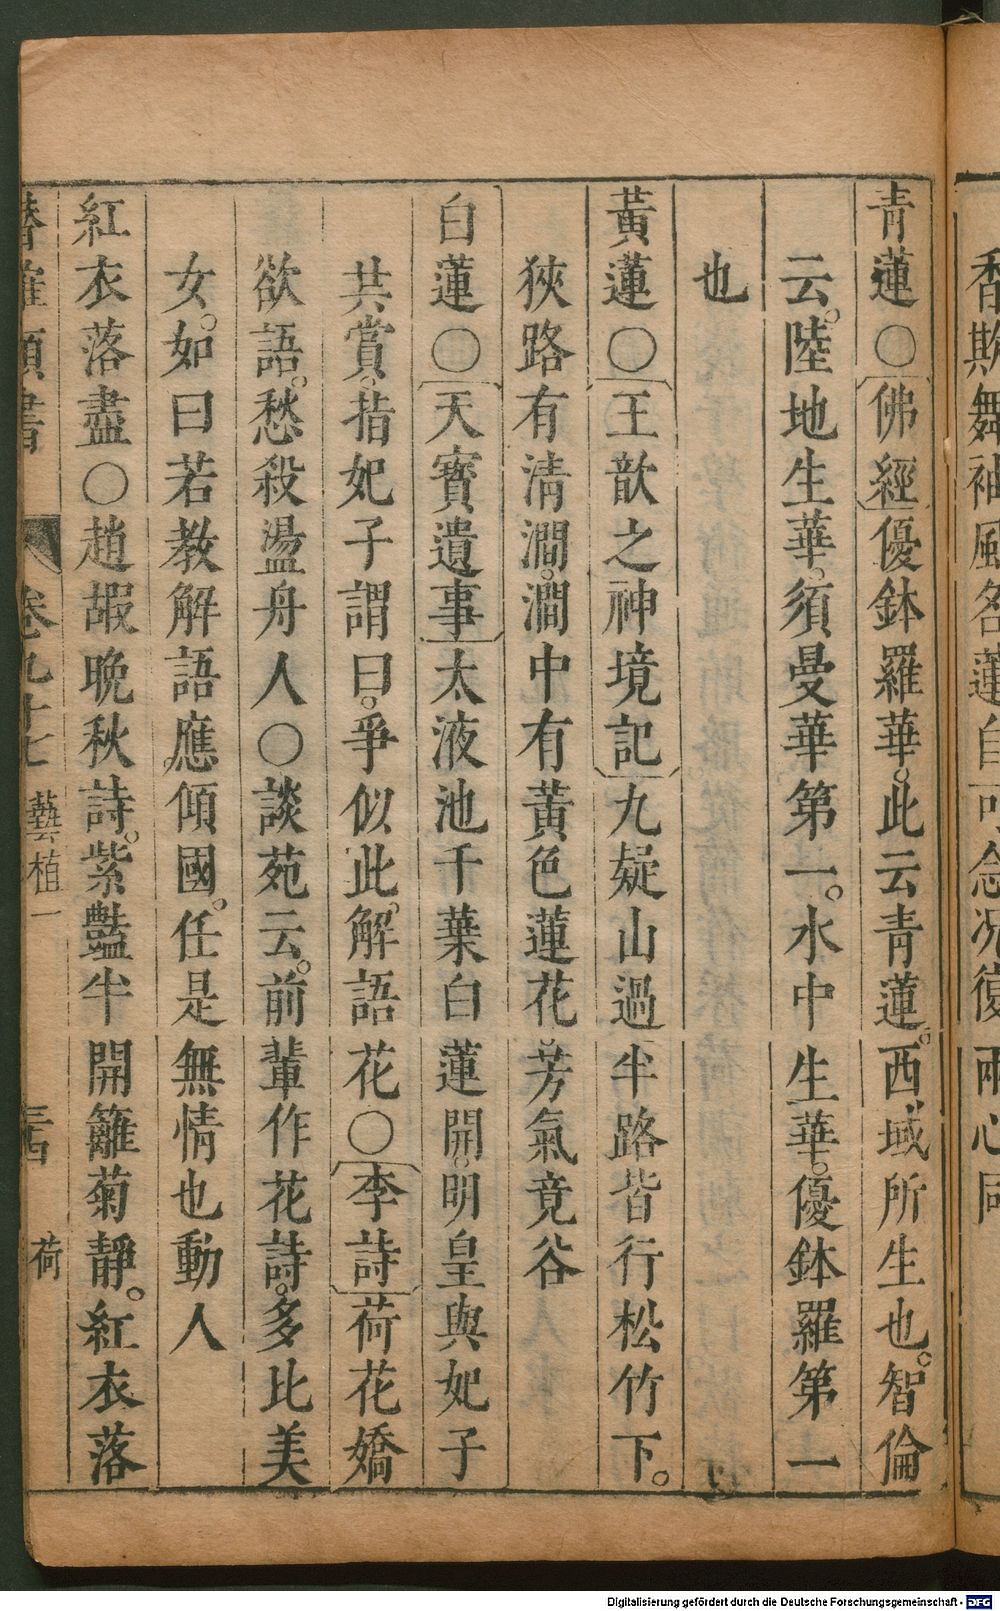 香斯舞袖風名蓮自可念况復兩心同
青蓮○佛經優鉢羅華。此云青蓮。西域所生也。智倫
云。陸地生華。須曼華第一。水中生華。優鉢羅第一
也
黃蓮○王歆之神境記九疑山過半路皆行松竹下。
狹路有清澗。澗中有黃色蓮花。芳氣竟谷
白蓮○天寶遺事太液池千葉白蓮開。明皇與妃子
共賞。指妃子謂曰。爭似此。解語花○李詩荷花嬌
欲語。愁殺盪舟人○談苑云。前輩作花詩。多比美
女。如曰若教解語。應傾國。任是無情也動人
紅衣落盡○趙嘏晚秋詩。紫豔半開籬菊靜。紅衣落
卷九十七 藝植一 三四 荷
Digitalisierung gefördert durch die Deutsche Forschungsgemeinschaft - DFG